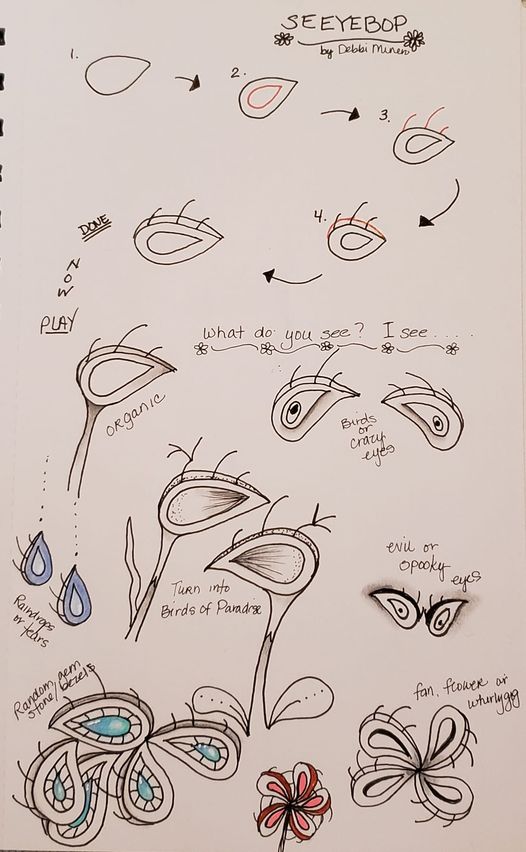 SEEYEBOP
by Debbi Munero
1.
2.
3.
4.
DONE
NOW
PLAY
What do you see? I see.....
ORGANIC
Birds
or
crazy
eyes
Turn into
Birds of Paradise
evil or
spooky
eyes
Raindrops
or tears
Random, gem
stone/bezels
fan, flower or
whurlygig